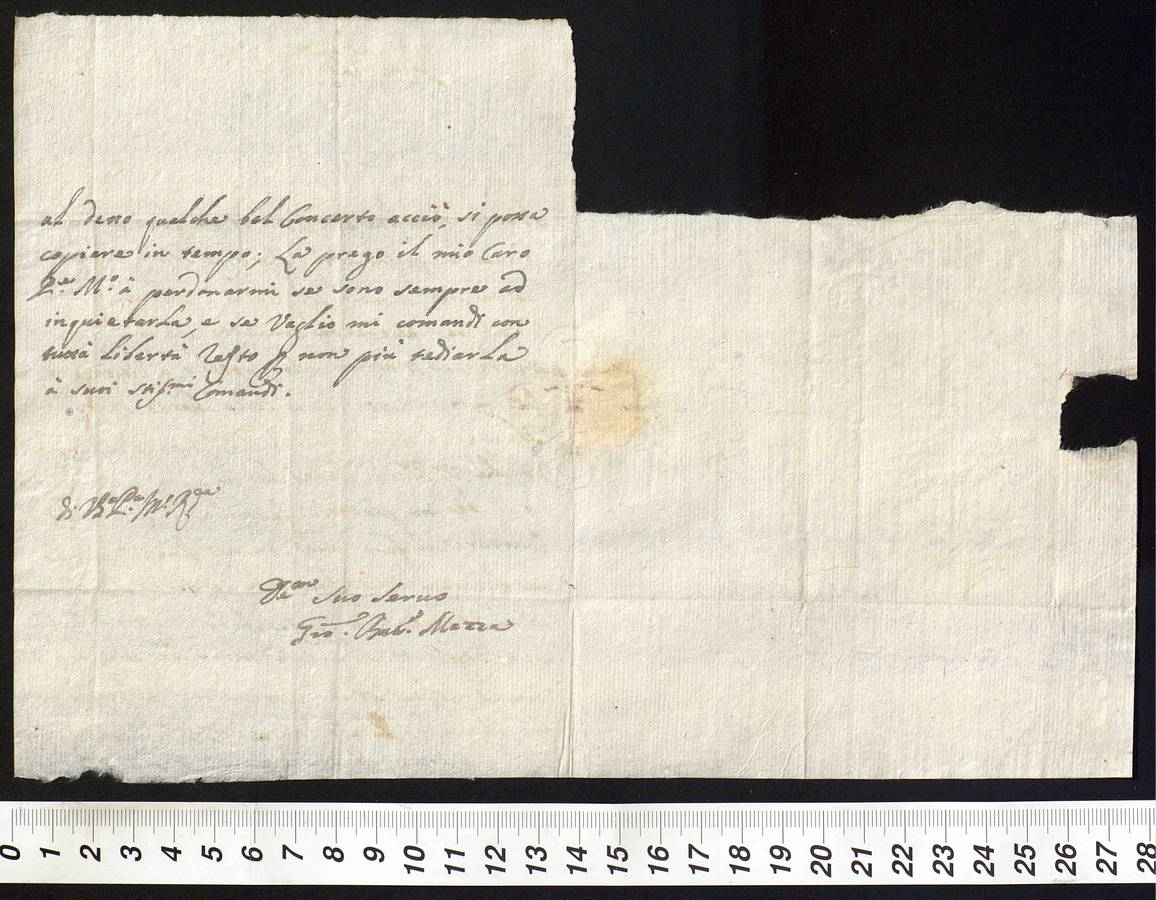 al detto qualche bel Concerto acciò si possa
copiare in tempo; La prego il mio Caro
P.re M.o à perdonarmi se sono sempre ad
inquietarLa, e se Vaglio mi comandi con
tutta libertà Resto p non più tediarLa
à suoi stis.mi Comandi.
di V.a P.a M.o R.da
Suo Servo
Gio. Bat.a Mazza
0 1 2 3 4 5 6 7 8 9 10 11 12 13 14 15 16 17 18 19 20 21 22 23 24 25 26 27 28